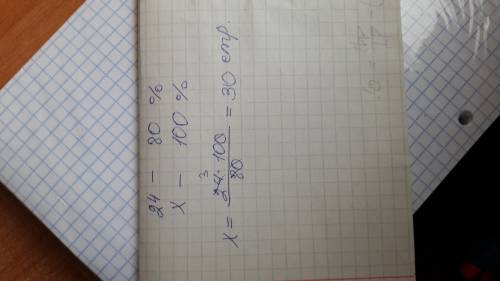 24 - 80 %
x - 100 %
x = 24·100 / 80 = 30 стр.
3